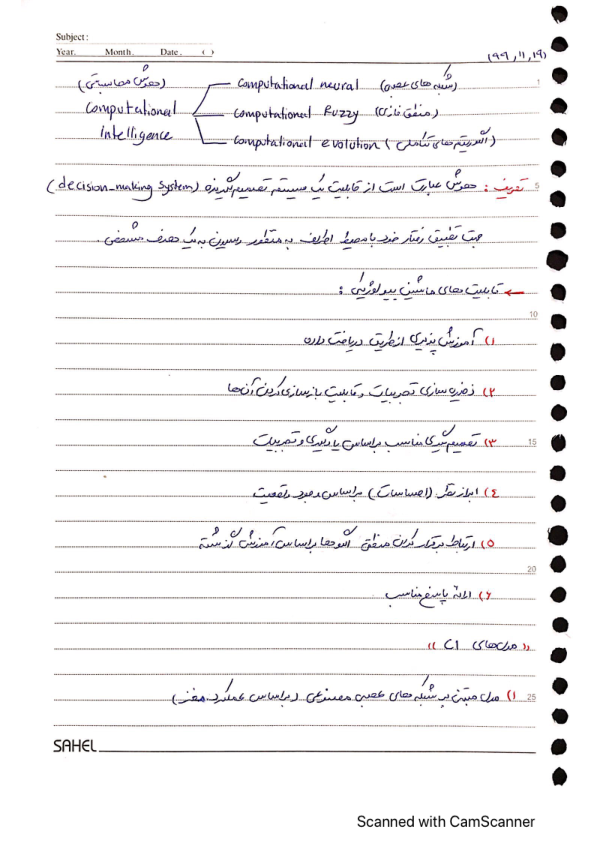 Subject:
Year. Month. Date. ( )
(99,11,19)
(هوش محاسباتی) computational neural (شبکه های عصبی)
Computational computational Fuzzy (منطق فازی)
Intelligence computational evolution (الگوریتم های تکاملی)
تعریف: هوش عبارت است از قابلیت یک سیستم تصمیم گیرنده (decision_making system)
جهت تطبیق رفتار خود با محیط اطراف به منظور رسیدن به یک هدف مشخص.
← قابلیت های ماشین بیولوژیکی:
۱) آموزش پذیری از طریق دریافت داده
۲) ذخیره سازی تجربیات و قابلیت بازسازی کردن آن ها
۳) تصمیم گیری مناسب براساس یادگیری و تجربیات
٤) ابراز نظر (احساسات) براساس وضعیت
۵) ارتباط برقرار کردن منطقی الگوها براساس آموزش گذشته
۶) ارائه پاسخ مناسب
«مدل های CI»
۱) مدل مبتنی بر شبکه های عصبی مصنوعی (براساس عملکرد مغز)
1
5
10
15
20
25
SAHEL
Scanned with CamScanner